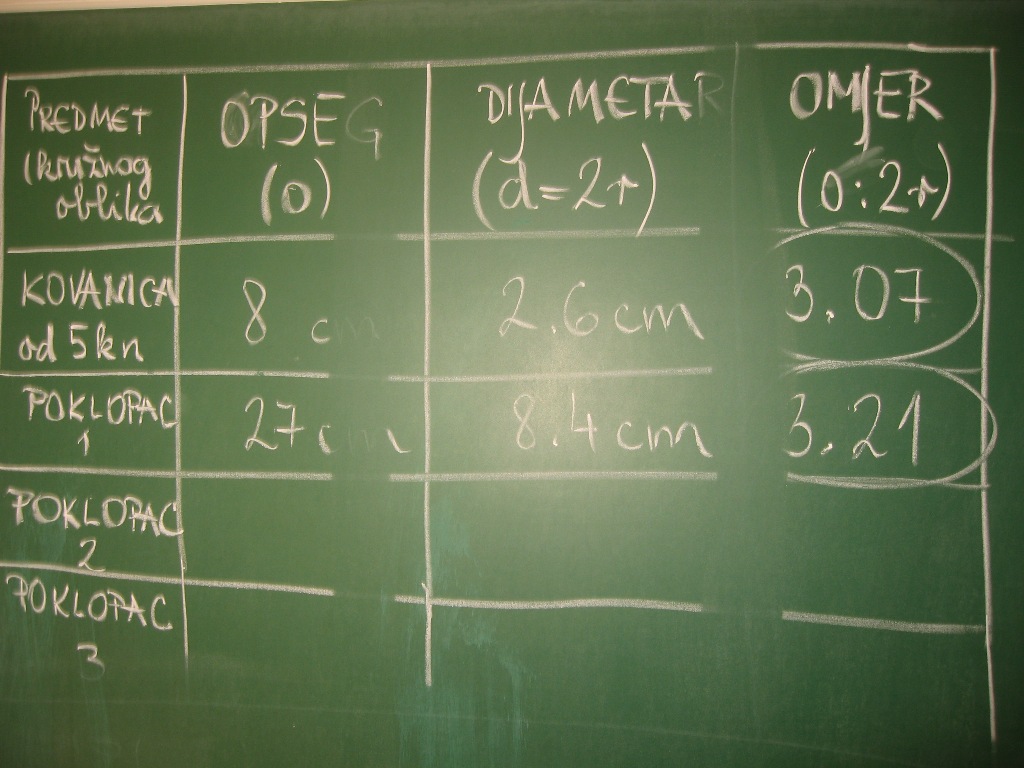 PREDMET
(kružnog
oblika
OPSEG
(o)
DIJAMETAR
(d=2r)
OMJER
(o:2r)
KOVANICA
od 5kn
8 cm
2.6 cm
3.07
POKLOPAC
1
27cm
8.4 cm
3.21
POKLOPAC
2
POKLOPAC
3